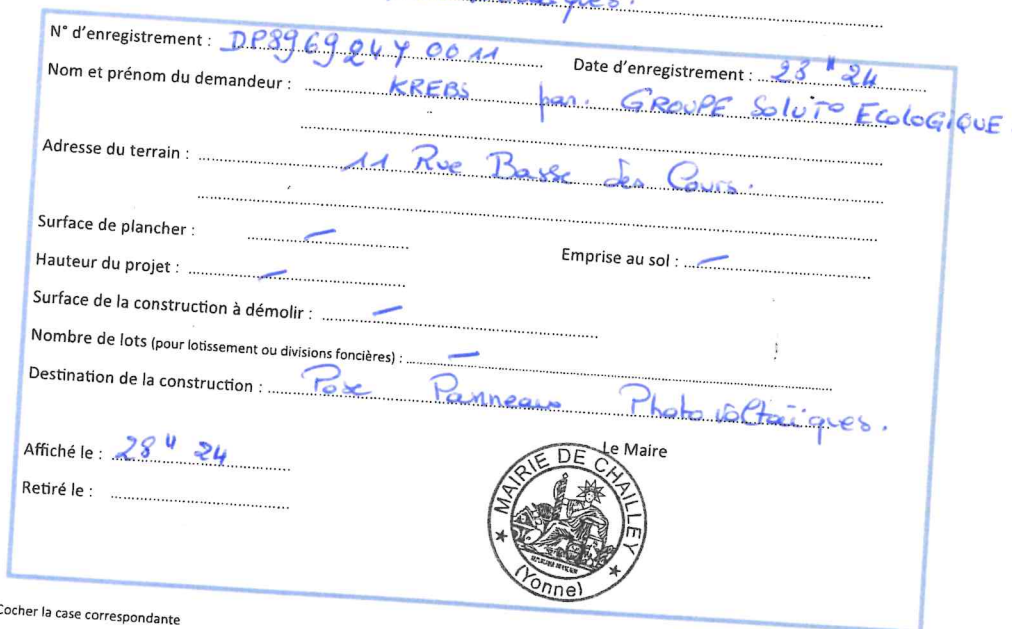 N° d'enregistrement : DP8969 24 Y 0011 Date d'enregistrement : 23 " 24
Nom et prénom du demandeur : KREBS par. GROUPE SoluT° EcoloGiQUE.
Adresse du terrain : 11 Rue Basse des Cours.
Surface de plancher : — Emprise au sol : —
Hauteur du projet : —
Surface de la construction à démolir : —
Nombre de lots (pour lotissement ou divisions foncières) : —
Destination de la construction : Pose Panneaux Photovoltaïques.
Affiché le : 28 " 24 Le Maire
Retiré le :
MAIRIE DE CHAILLEY
(Yonne)
Cocher la case correspondante